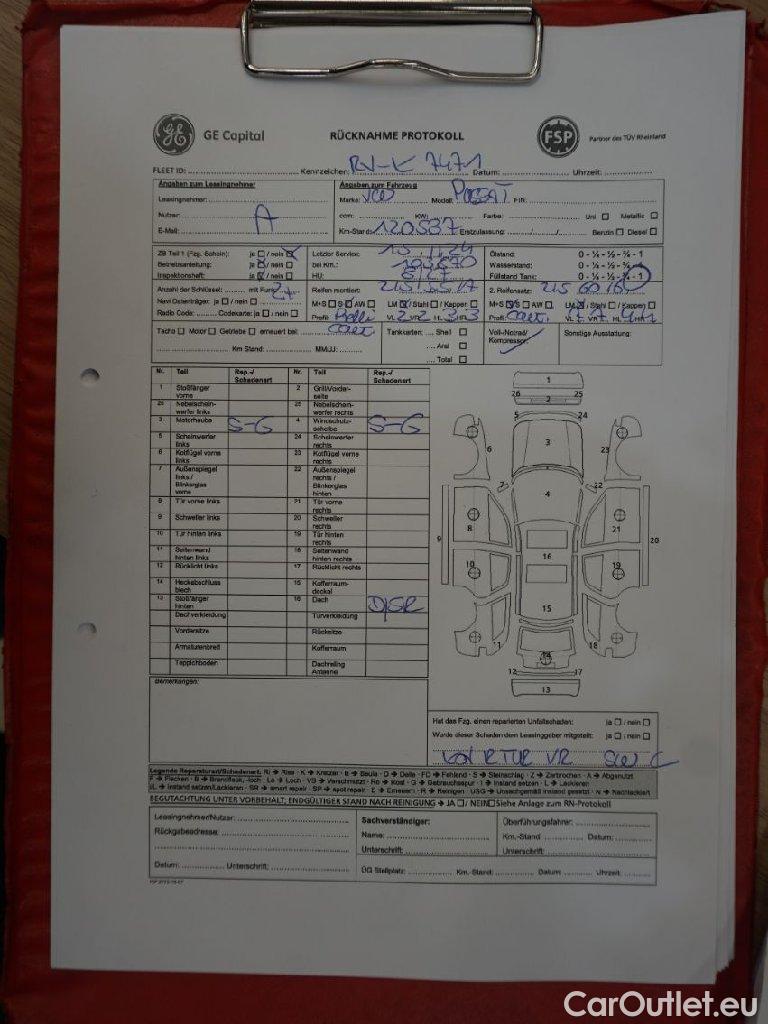 GE Capital RÜCKNAHME PROTOKOLL FSP Partner des TÜV Rheinland
FLEET ID: Kennzeichen: RV-K 7471 Datum: Uhrzeit:
Angaben zum Leasingnehmer
Leasingnehmer:
Nutzer: A
E-Mail:
Angaben zum Fahrzeug
Marke: VW Modell: PASSAT FIN:
ccm: KW: Farbe: Uni ☐ Metallic ☐
Km-Stand: 120537 Erstzulassung: / / Benzin ☐ Diesel ☐
ZB Teil 1 (Fzg.-Schein): ja ☐ / nein ☒
Betriebsanleitung: ja ☒ / nein ☐
Inspektionsheft: ja ☒ / nein ☐
Letzter Service: 15.11.24
bei Km.:
HU: 8/27
Ölstand: 0 - ¼ - ½ - ¾ - 1
Wasserstand: 0 - ¼ - ½ - ¾ - 1
Füllstand Tank: 0 - ¼ - ½ - ¾ - 1
Anzahl der Schlüssel: mit Funk: 2+
Navi Datenträger: ja ☐ / nein ☐
Radio Code: Codekarte: ja ☐ / nein ☐
Reifen montiert: 215/55/17
M+S ☐ S ☐ AW ☐ LM ☒ / Stahl ☐ / Kappen ☐
Profil: VL 2 VR 2 HL 3 HR 3
2. Reifensatz: 215 60 16
M+S ☒ S ☐ AW ☐ LM ☒ / Stahl ☐ / Kappen ☐
Profil: VL 7 VR 7 HL 4 HR 4
Tacho ☐ Motor ☐ Getriebe ☐ erneuert bei:
Km Stand: MM/JJ:
Tankkarten: Shell ☐
Aral ☐
Total ☐
Voll-Notrad/
Kompressor:
Sonstige Ausstattung:
Nr. Teil Rep.-/ Schadenart Nr. Teil Rep.-/ Schadenart
1 Stoßfänger vorne 2 Grill/Vorderseite
26 Nebelscheinwerfer links 25 Nebelscheinwerfer rechts
3 Motorhaube S-G 4 Windschutzscheibe S-G
5 Scheinwerfer links 24 Scheinwerfer rechts
6 Kotflügel vorne links 23 Kotflügel vorne rechts
7 Außenspiegel links / Blinkerglas vorne 22 Außenspiegel rechts / Blinkerglas hinten
8 Tür vorne links 21 Tür vorne rechts
9 Schweller links 20 Schweller rechts
10 Tür hinten links 19 Tür hinten rechts
11 Seitenwand hinten links 18 Seitenwand hinten rechts
12 Rücklicht links 17 Rücklicht rechts
14 Heckabschlussblech 15 Kofferraumdeckel
13 Stoßfänger hinten 16 Dach D/SR
Dachverkleidung Türverkleidung
Vordersitze Rücksitze
Armaturenbrett Kofferraum
Teppichboden Dachreling Antenne
1
26 2 25
5 24
6 3 23
7 22
4
8 21
9 20
10 16 19
15
11 14 18
12 17
13
Bemerkungen:
Hat das Fzg. einen reparierten Unfallschaden: ja ☐ / nein ☐
Wurde dieser Schaden dem Leasinggeber mitgeteilt: ja ☐ / nein ☐
Legende Reparaturart/Schadenart: RI → Riss - K → Kratzer - B → Beule - D → Delle - FC → Fehlend - S → Steinschlag - Z → Zerbrochen - A → Abgenutzt
F → Flecken - B → Brandfleck, -loch - Lo → Loch - VS → Verschmutzt - Ro → Rost - G → Gebrauchsspur - I → Instand setzen - L → Lackieren
IL → Instand setzen/Lackieren - SR → smart repair - SP → spot repair - E → Erneuern - R → Reinigen - USG → Unsachgemäß instand gesetzt - N → Nachlackiert
BEGUTACHTUNG UNTER VORBEHALT; ENDGÜLTIGER STAND NACH REINIGUNG → JA ☐ / NEIN ☐ Siehe Anlage zum RN-Protokoll
Leasingnehmer/Nutzer:
Rückgabeadresse:
Datum: Unterschrift:
Sachverständiger:
Name:
Unterschrift:
Überführungsfahrer:
Km.-Stand Datum:
Unterschrift:
ÜG Stellplatz: Km.-Stand: Datum Uhrzeit:
CarOutlet.eu